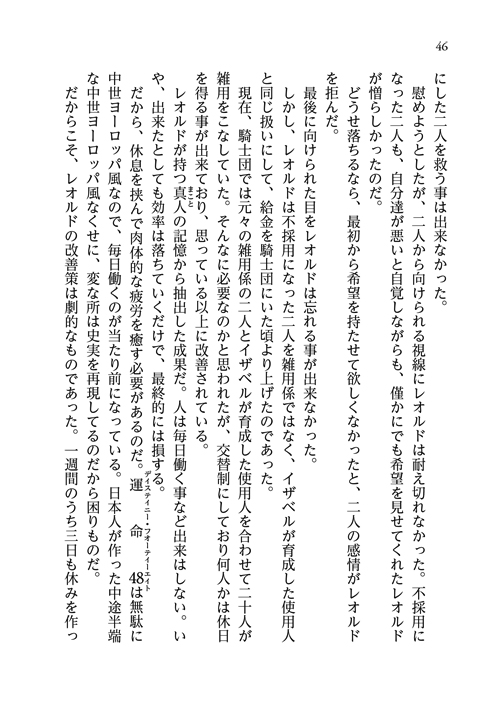 46
にした二人を救う事は出来なかった。
　慰めようとしたが、二人から向けられる視線にレオルドは耐え切れなかった。不採用に
なった二人も、自分達が悪いと自覚しながらも、僅かにでも希望を見せてくれたレオルド
が憎らしかったのだ。
　どうせ落ちるなら、最初から希望を持たせて欲しくなかったと、二人の感情がレオルド
を拒んだ。
　最後に向けられた目をレオルドは忘れる事が出来なかった。
　しかし、レオルドは不採用になった二人を雑用係ではなく、イザベルが育成した使用人
と同じ扱いにして、給金を騎士団にいた頃より上げたのであった。
　現在、騎士団では元々の雑用係の二人とイザベルが育成した使用人を合わせて二十人が
雑用をこなしていた。そんなに必要なのかと思われたが、交替制にしており何人かは休日
を得る事が出来ており、思っている以上に改善されている。
　レオルドが持つ真人の記憶から抽出した成果だ。人は毎日働く事など出来はしない。い
まこと
や、出来たとしても効率は落ちていくだけで、最終的には損する。
　だから、休息を挟んで肉体的な疲労を癒す必要があるのだ。運命48は無駄に
デイスティニー・フォーティーエイト
中世ヨーロッパ風なので、毎日働くのが当たり前になっている。日本人が作った中途半端
な中世ヨーロッパ風なくせに、変な所は史実を再現してるのだから困りものだ。
　だからこそ、レオルドの改善策は劇的なものであった。一週間のうち三日も休みを作っ